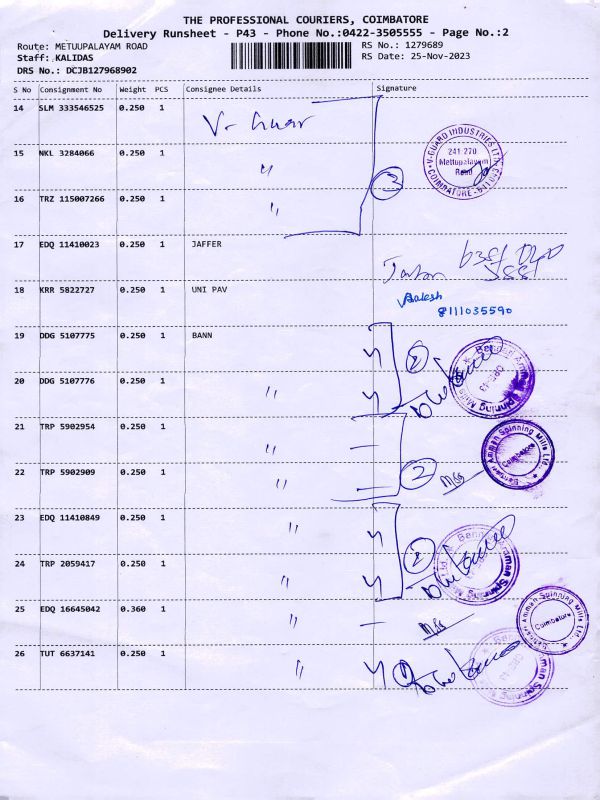 THE PROFESSIONAL COURIERS, COIMBATORE
Delivery Runsheet - P43 - Phone No.:0422-3505555 - Page No.:2
Route: METUUPALAYAM ROAD
RS No.: 1279689
Staff: KALIDAS
RS Date: 25-Nov-2023
DRS No.: DCJB127968902
S No Consignment No Weight PCS Consignee Details Signature
14 SLM 333546525 0.250 1 V-Guar
15 NKL 3284066 0.250 1 〃
V-GUARD INDUSTRIES LTD
241 270
Mettupalayam
Road
COIMBATORE - 641043
16 TRZ 115007266 0.250 1 〃 3
17 EDQ 11410023 0.250 1 JAFFER
18 KRR 5822727 0.250 1 UNI PAV
8111035590
19 DDG 5107775 0.250 1 BANN
20 DDG 5107776 0.250 1 〃
21 TRP 5902954 0.250 1 〃
Bannari Amman Spinning Mills Ltd.
Coimbatore
22 TRP 5902909 0.250 1 〃 2
23 EDQ 11410849 0.250 1 〃
24 TRP 2059417 0.250 1 〃
25 EDQ 16645042 0.360 1 〃
Bannari Amman Spinning Mills Ltd.,
Coimbatore
26 TUT 6637141 0.250 1 〃